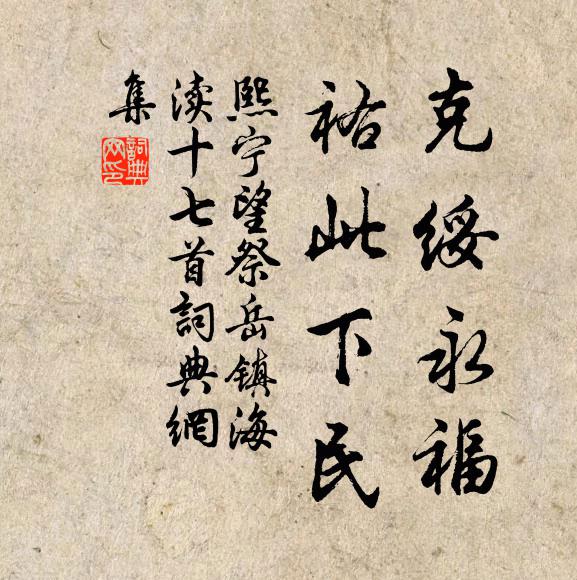 克绥永福
祐此下民
熙宁望祭岳镇海
渎十七首詞典網
集
詞典網印